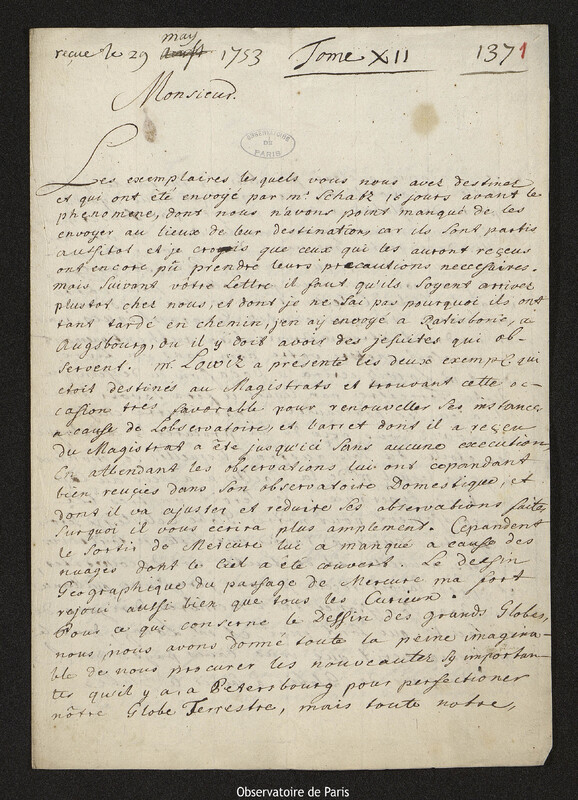 may
recue le 29 aoust 1753 Tome XII 1371
Monsieur.
OBSERVATOIRE
DE
PARIS
Les exemplaires lesquels vous nous avez destinez
et qui ont été envoyé par mr Schatz 15 jours avant le
phenomene, dont nous n'avons point manqué de les
envoyer au lieux de leur destination, car ils sont partis
aussitot et je crois que ceux qui les auront reçeus
ont encore pû prendre leurs precautions necessaires.
mais suivant vôtre Lettre il faut qu'ils soyent arrivez
plustot chez nous, et dont je ne sai pas pourquoi ils ont
tant tardé en chemin, j'en aij envoyé a Ratisbone, a
Augsbourg, ou il y doit avois des jesuites qui ob-
servent. mr. Lowiz a presenté les deux exempl: qui
etoit destinés au Magistrats et trouvant cette oc-
casion tres favorable pour renouveller ses instances
a cause de Lobservatoire, et l'arret dont il a reçeu
du Magistrat a été jusqu'ici sans aucune execution,
En attendant les observations lui ont cepandant
bien reuçies dans son observatoire Domestique, et
dont il va ajuster et reduire ses observations faites
surquoi il vous ecrira plus amplement. Cepandent
le sortir de Mercure lui a manqué a cause des
nuages dont le Ciel a été couvert. Le dessin
Geographique du passage de Mercure ma fort
rejoui aussi bien que tous les Curieux.
Pour ce qui conserne le Dessin des grands Globes,
nous nous avons donné toute la peine imagina-
ble de nous procurer les nouveautez sy importan-
tes qu'il y a, a Petersbourg pour perfectioner
nôtre Globe Terrestre, mais toute notre,
Observatoire de Paris